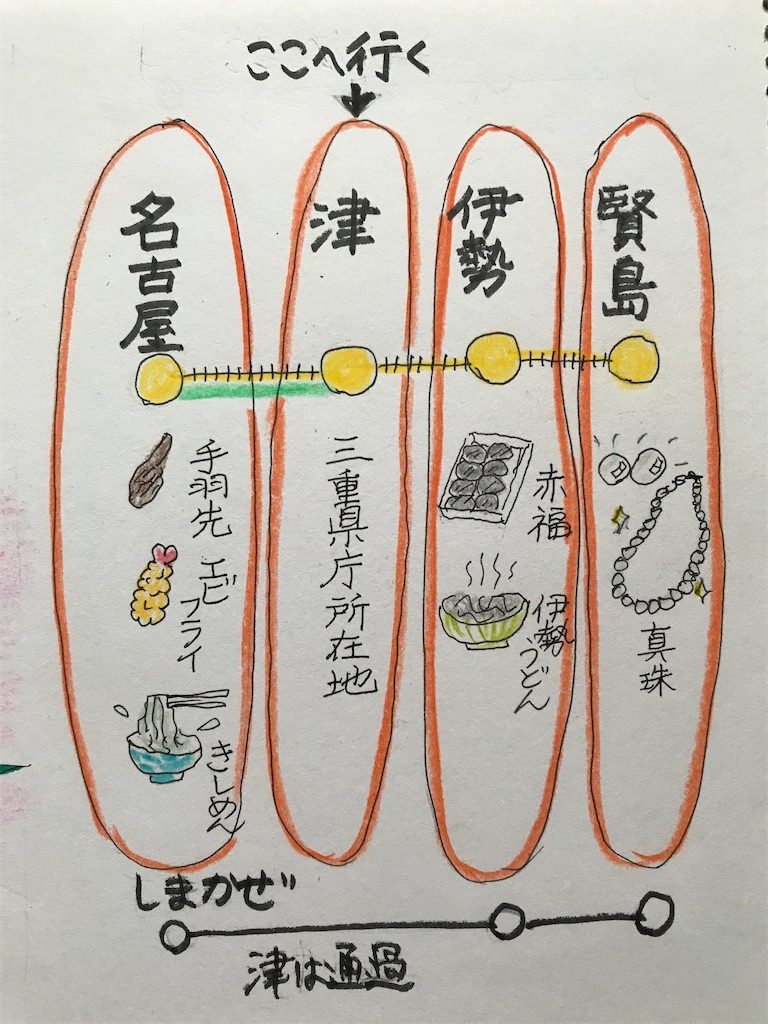 ここへ行く
名古屋
手羽先
エビ
フライ
きしめん
津
三重県庁所在地
伊勢
赤福
伊勢
うどん
賢島
真珠
しまかぜ
津は通過